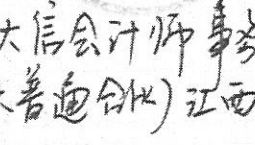 大信会计师事务
普通合伙）江西